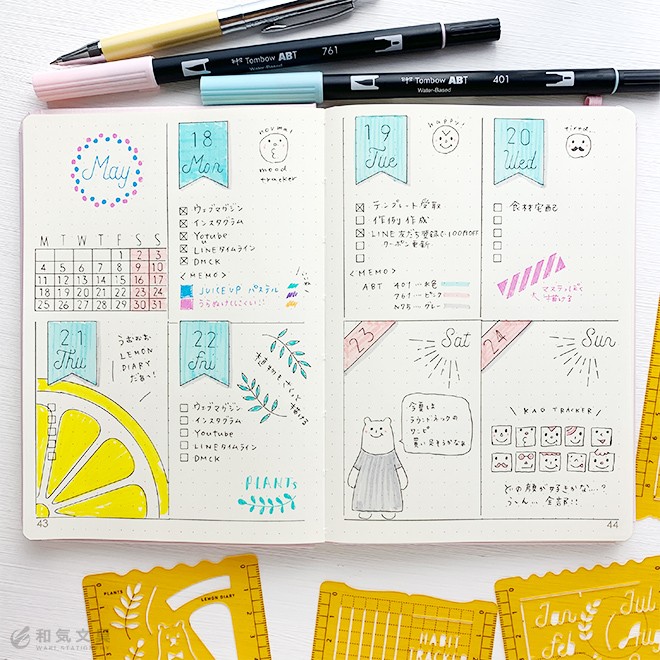 Tombow ABT
Water-Based
761
Tombow ABT
Water-Based
401
May
M T W T F S S
1 2 3
4 5 6 7 8 9 10
11 12 13 14 15 16 17
18 19 20 21 22 23 24
25 26 27 28 29 30 31
18
Mon
normal
mood
tracker
ウェブマガジン
インスタグラム
Youtube
LINEタイムライン
DMCK
<MEMO>
JUICE UP パステル
うらぬけしにくい!
19
Tue
happy!
テンプレート受取
作例作成
LINE友だち登録で100円OFF
クーポン更新
<MEMO>
ABT 401…水色
761…ピンク
N75…グレー
20
Wed
tired..
食材宅配
マステルぽく
描ける
21
Thu
LEMON
DIARY
だぁい!
22
Fri
ウェブマガジン
インスタグラム
Youtube
LINEタイムライン
DMCK
植物もさくっと描ける
PLANTS
23
Sat
今夏は
ラウンドネックの
ワンピ
買い足そうかなぁ
24
Sun
KAO TRACKER
どの顔が好きかな…?
うーん… 全部!!
43
44
PLANTS
LEMON DIARY
HABIT
TRACKER
Jan
Feb
Jul
Aug
和気文具
WAKI STATIONERY